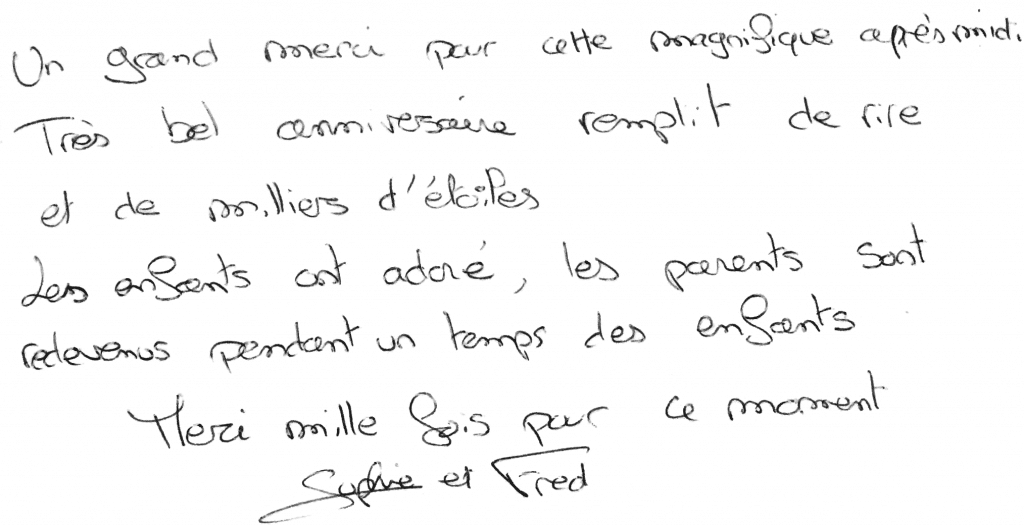 Un grand merci pour cette magnifique après midi.
Très bel anniversaire remplit de rire
et de milliers d'étoiles
Les enfants ont adoré, les parents sont
redevenus pendant un temps des enfants
Merci mille fois pour ce moment
Sophie et Fred